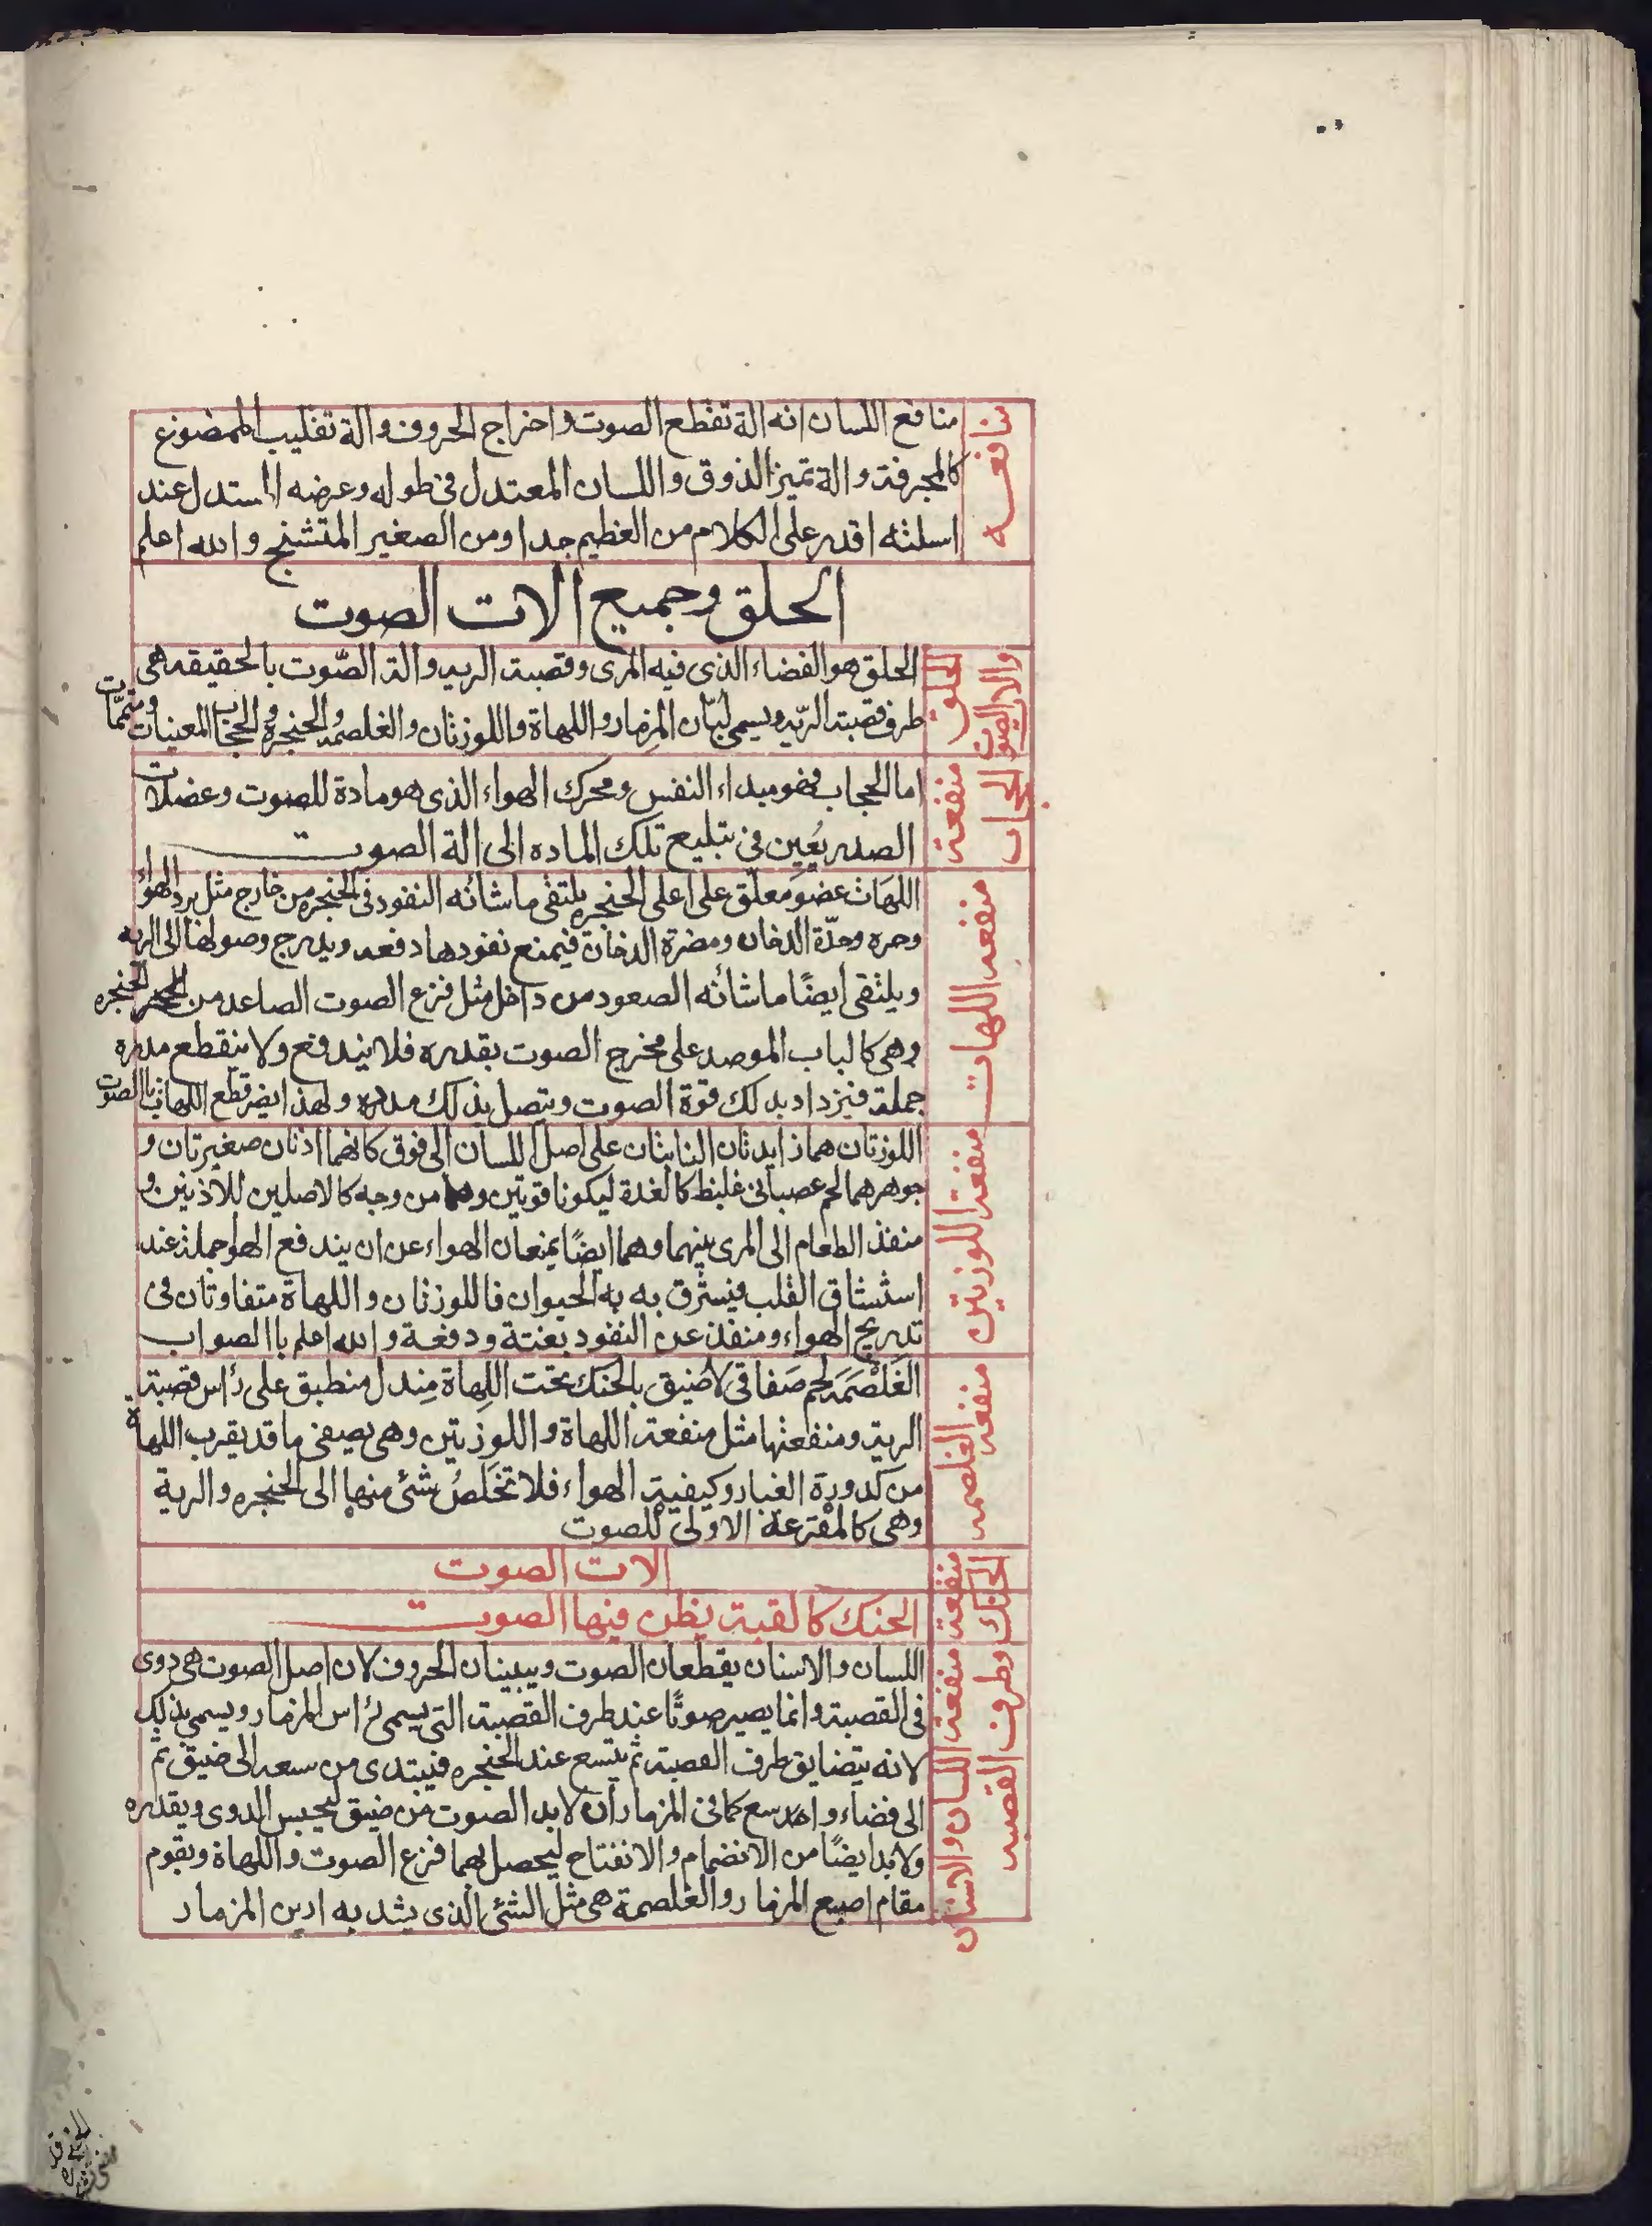 منافعه
منافع اللسان انه الة تقطع الصوت واخراج الحروف والة تقليب الممضوغ
كالمجرفة والة تميز الذوق واللسان المعتدل فى طوله وعرضه المستدل عند
اسلته اقدر على الكلام من العظيم جدا ومن الصغير المتشنج والله اعلم
الحلق وجميع الات الصوت
الحلق والات الصوت
الحلق هو الفضاء الذى فيه المرى وقصبة الريه والة الصّوت بالحقيقه هى
طرف قصبة الريّه ويسمى لسان المزمار واللهاة واللوزتان والغلصمُه والحنجرة والحجاب المعنيات ومتممات
منفعة الحجاب
اما الحجاب فهو مبداء النفس ومحرك الهواء الذى هو مادة للصوت وعضلات
الصدر يُعين فى تبليع تلك الماده الى الة الصوت
منفعه اللهات
اللهَات عضو معلّق على اعلى الحنجره يلتقى ما شانه النفود فى الحنجره من خارج مثل برد الهواء
وحره وحدّة الدخان ومضرة الدخان فيمنع نفودها دفعه ويدرج وصولها الى الريه
ويلتقى ايضًا ما شانه الصعود من داخل مثل قرع الصوت الصاعد من الحنجره
وهى كالباب الموصد على مخرج الصوت بقدره فلا يندفع ولا ينقطع مدره
جملة فيزداد بدلك قوة الصوت ويتصل بذلك مدره ولهذا يضر قطع اللهاث بالصوت
منفعة اللوزتين
اللوزتان هما زايدتان الناتيتان على اصل اللسان الى فوق كانهما اذنان صغيرتان و
جوهرهما لحم عصبانى غليظ كالغدة ليكونا قوتين وهما من وجه كالاصلين للاذنين و
منفذ الطعام الى المرى بينهما وهما ايضًا يمنعان الهواء عن ان يندفع الهوا جملة عند
استنشاق القلب فيشرق به به الحيوان فاللوزتان واللهاة متفاوتان فى
تدريج الهواء ومنفذ عن النفود بغتة ودفعة والله اعلم باالصواب
منفعه الغلصمه
الغَلْصَمَه لحم صَفاقى لاضيق بالحنك تحت اللِهاة مِندل منطبق على رأس قصبة
الرية ومنفعتها مثل منفعة اللهاة واللوزتين وهى يصفى ما قد يقرب اللهاة
من كدورة الغبار وكيفية الهواء فلا تخَلصُ شئ منها الى الحنجره والرية
وهى كالمقْرعة الاولى للصوت
الات الصوت
منفعة الحنك
الحنك كالقبة يظن فيها الصوت
منفعة اللسان والاسنان وطرف القصبه
اللسان والاسنان يقطعان الصوت ويبينان الحروف لان اصل الصوت هى دوى
فى القصبة وانما يصير صوتًا عند طرف القصبة التى يسمى رأس المزمار ويسمى بذلك
لانه يتضايق طرف القصبة ثم يتسع عند الحنجره فيبتدى من سعه الى ضيق ثم
الى فضاء واسع كما فى المزمار ان لابد الصوت من ضيق ليحبس الدوى ويقدره
ولابد ايضًا من الانضمام والانفتاح ليحصل بهما قرع الصوت واللهاة ويقوم
مقام اصبع المزمار والغلصمة هى مثل الشئ الذى يشد به اس المزمار